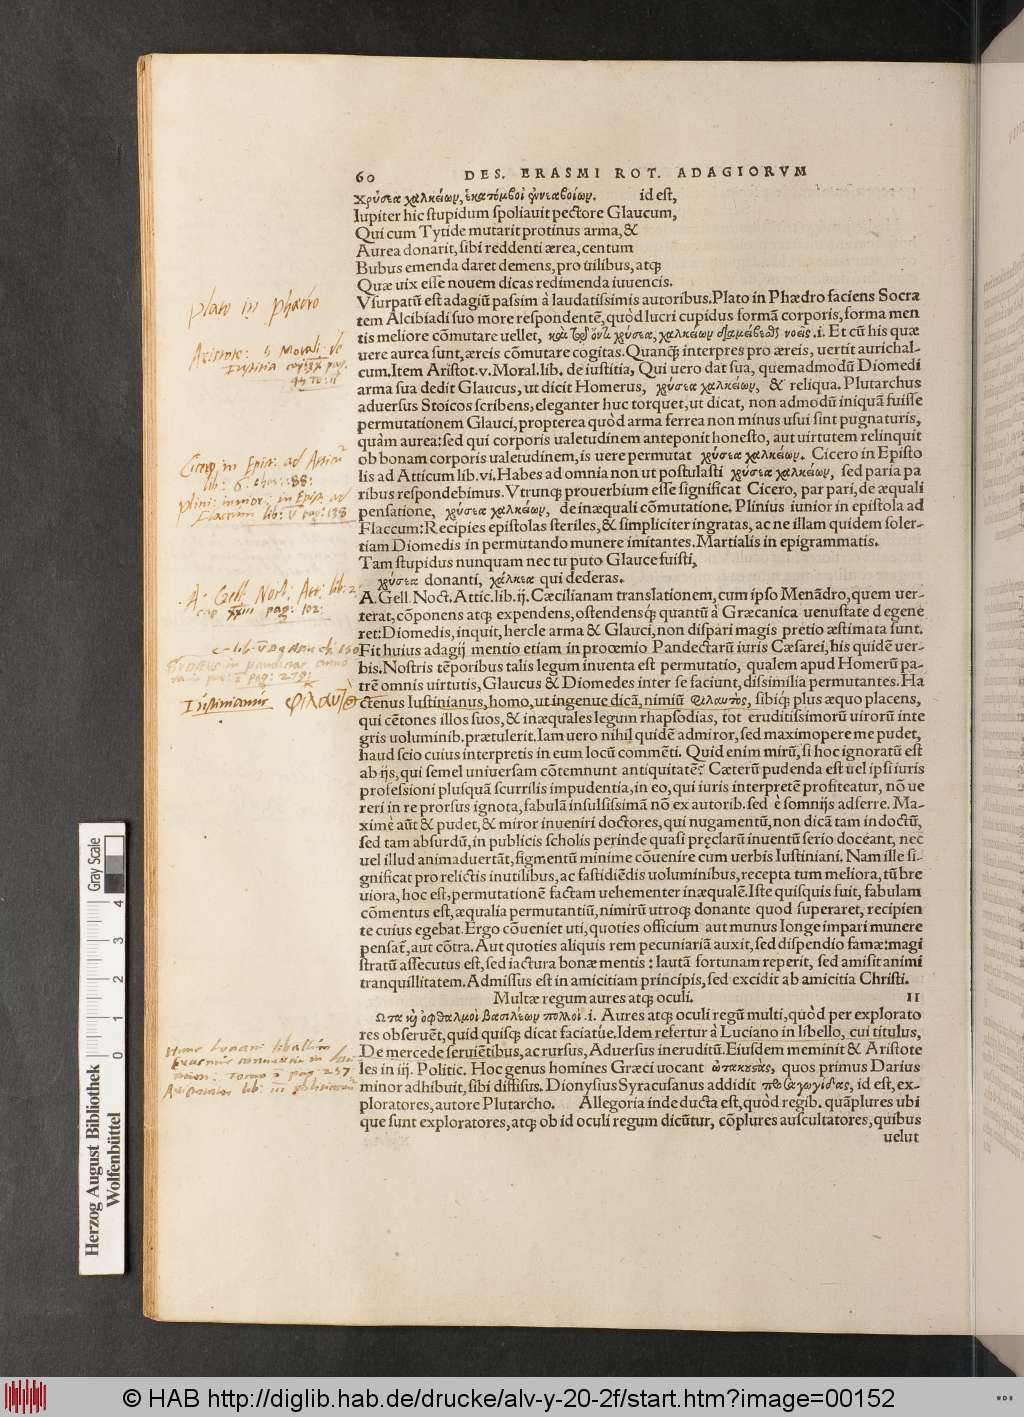 60 DES. ERASMI ROT. ADAGIORVM
χρύσεα χαλκείων, ἑκατόμβοι ἐννεαβοίων. id est,
Iupiter hic stupidum spoliauit pectore Glaucum,
Qui cum Tytide mutarit protinus arma, &
Aurea donarit, sibi reddenti ærea, centum
Bubus emenda daret demens, pro uilibus, atq;
Quæ uix esse nouem dicas redimenda iuuencis.
Vsurpatũ est adagiũ passim à laudatissimis autoribus. Plato in Phædro faciens Socra
tem Alcibiadi suo more respondentẽ, quòd lucri cupidus formã corporis, forma men
tis meliore cõmutare uellet, χρύσεα, χαλκείων διαμείβεσθαι νοεῖς .i. Et cũ his quæ
uere aurea sunt, æreis cõmutare cogitas. Quanq; interpres pro æreis, uertit aurichal-
cum. Item Aristot. v. Moral. lib. de iustitia, Qui uero dat sua, quemadmodũ Diomedi
arma sua dedit Glaucus, ut dicit Homerus, χρύσεα χαλκείων, & reliqua. Plutarchus
aduersus Stoicos scribens, eleganter huc torquet, ut dicat, non admodũ iniquã fuisse
permutationem Glauci, propterea quòd arma ferrea non minus usui sint pugnaturis,
quàm aurea: sed qui corporis ualetudinem anteponit honesto, aut uirtutem relinquit
ob bonam corporis ualetudinem, is uere permutat χρύσεα χαλκείων. Cicero in Episto
lis ad Atticum lib. vi. Habes ad omnia non ut postulasti χρύσεα χαλκείων, sed paria pa
ribus respondebimus. Vtrunq; prouerbium esse significat Cicero, par pari, de æquali
pensatione, χρύσεα χαλκείων, de inæquali cõmutatione. Plinius iunior in epistola ad
Flaccum: Recipies epistolas steriles, & simpliciter ingratas, ac ne illam quidem soler-
tiam Diomedis in permutando munere imitantes. Martialis in epigrammatis.
Tam stupidus nunquam nec tu puto Glauce fuisti,
χρύσεα donanti, χάλκεα qui dederas.
A. Gell. Noct. Attic. lib. ij. Cæcilianam translationem, cum ipso Menãdro, quem uer-
terat, cõponens atq; expendens, ostendensq; quantũ à Græcanica uenustate degene
ret: Diomedis, inquit, hercle arma & Glauci, non dispari magis pretio æstimata sunt.
Fit huius adagij mentio etiam in proœmio Pandectarũ iuris Cæsarei, his quidẽ uer-
bis. Nostris tẽporibus talis legum inuenta est permutatio, qualem apud Homerũ pa-
trẽ omnis uirtutis, Glaucus & Diomedes inter se faciunt, dissimilia permutantes. Ha
ctenus Iustinianus, homo, ut ingenue dicã, nimiũ φίλαυτος, sibiq; plus æquo placens,
qui cẽtones illos suos, & inæquales legum rhapsodias, tot eruditissimorũ uirorũ inte
gris uoluminib. prætulerit. Iam uero nihil quidẽ admiror, sed maximopere me pudet,
haud scio cuius interpretis in eum locũ commẽti. Quid enim mirũ, si hoc ignoratũ est
ab ijs, qui semel uniuersam cõtemnunt antiquitatẽ? Cæterũ pudenda est uel ipsi iuris
professioni plusquã scurrilis impudentia, in eo, qui iuris interpretẽ profiteatur, nõ ue
reri in re prorsus ignota, fabulã insulsissimã nõ ex autorib. sed è somnijs adferre. Ma-
ximè aũt & pudet, & miror inueniri doctores, qui nugamentũ, non dicã tam indoctũ,
sed tam absurdũ, in publicis scholis perinde quasi pręclarũ inuentũ serio doceant, nec
uel illud animaduertãt, figmentũ minime cõuenire cum uerbis Iustiniani. Nam ille si-
gnificat pro relictis inutilibus, ac fastidiẽdis uoluminibus, recepta tum meliora, tũ bre
uiora, hoc est, permutationẽ factam uehementer inæqualẽ. Iste quisquis fuit, fabulam
cõmentus est, æqualia permutantiũ, nimirũ utroq; donante quod superaret, recipien
te cuius egebat. Ergo cõueniet uti, quoties officium aut munus longe impari munere
pensat̃, aut cõtra. Aut quoties aliquis rem pecuniariã auxit, sed dispendio famæ: magi
stratũ assecutus est, sed iactura bonæ mentis: lautã fortunam reperit, sed amisit animi
tranquillitatem. Admissus est in amicitiam principis, sed excidit ab amicitia Christi.
Multæ regum aures atq; oculi. II
Ὦτα καὶ ὀφθαλμοὶ βασιλέων πολλοί .i. Aures atq; oculi regũ multi, quòd per explorato
res obseruẽt, quid quisq; dicat faciatúe. Idem refertur à Luciano in libello, cui titulus,
De mercede seruiẽtibus, ac rursus, Aduersus ineruditũ. Eiusdem meminit & Aristote
les in iij. Politic. Hoc genus homines Græci uocant ὠτακουστὰς, quos primus Darius
minor adhibuit, sibi diffisus. Dionysius Syracusanus addidit προσαγωγίδας, id est, ex-
ploratores, autore Plutarcho. Allegoria inde ducta est, quòd regib. quãplures ubi
que sunt exploratores, atq; ob id oculi regum dicũtur, cõplures auscultatores, quibus
uelut
Plato in Phædro
Aristote: 5 Morali: de
Iustitia
Cicero in Epist: ad Atticũ
lib: 6
Plini: iunior: in Epist: ad
Flaccum lib: V pag: 138
A. Gell. Noct: Att: lib: 2:
cap XXIII pag: 102:
Iustinianus φίλαυτος
Herzog August Bibliothek
Wolfenbüttel
Gray Scale
0 1 2 3 4
© HAB http://diglib.hab.de/drucke/alv-y-20-2f/start.htm?image=00152